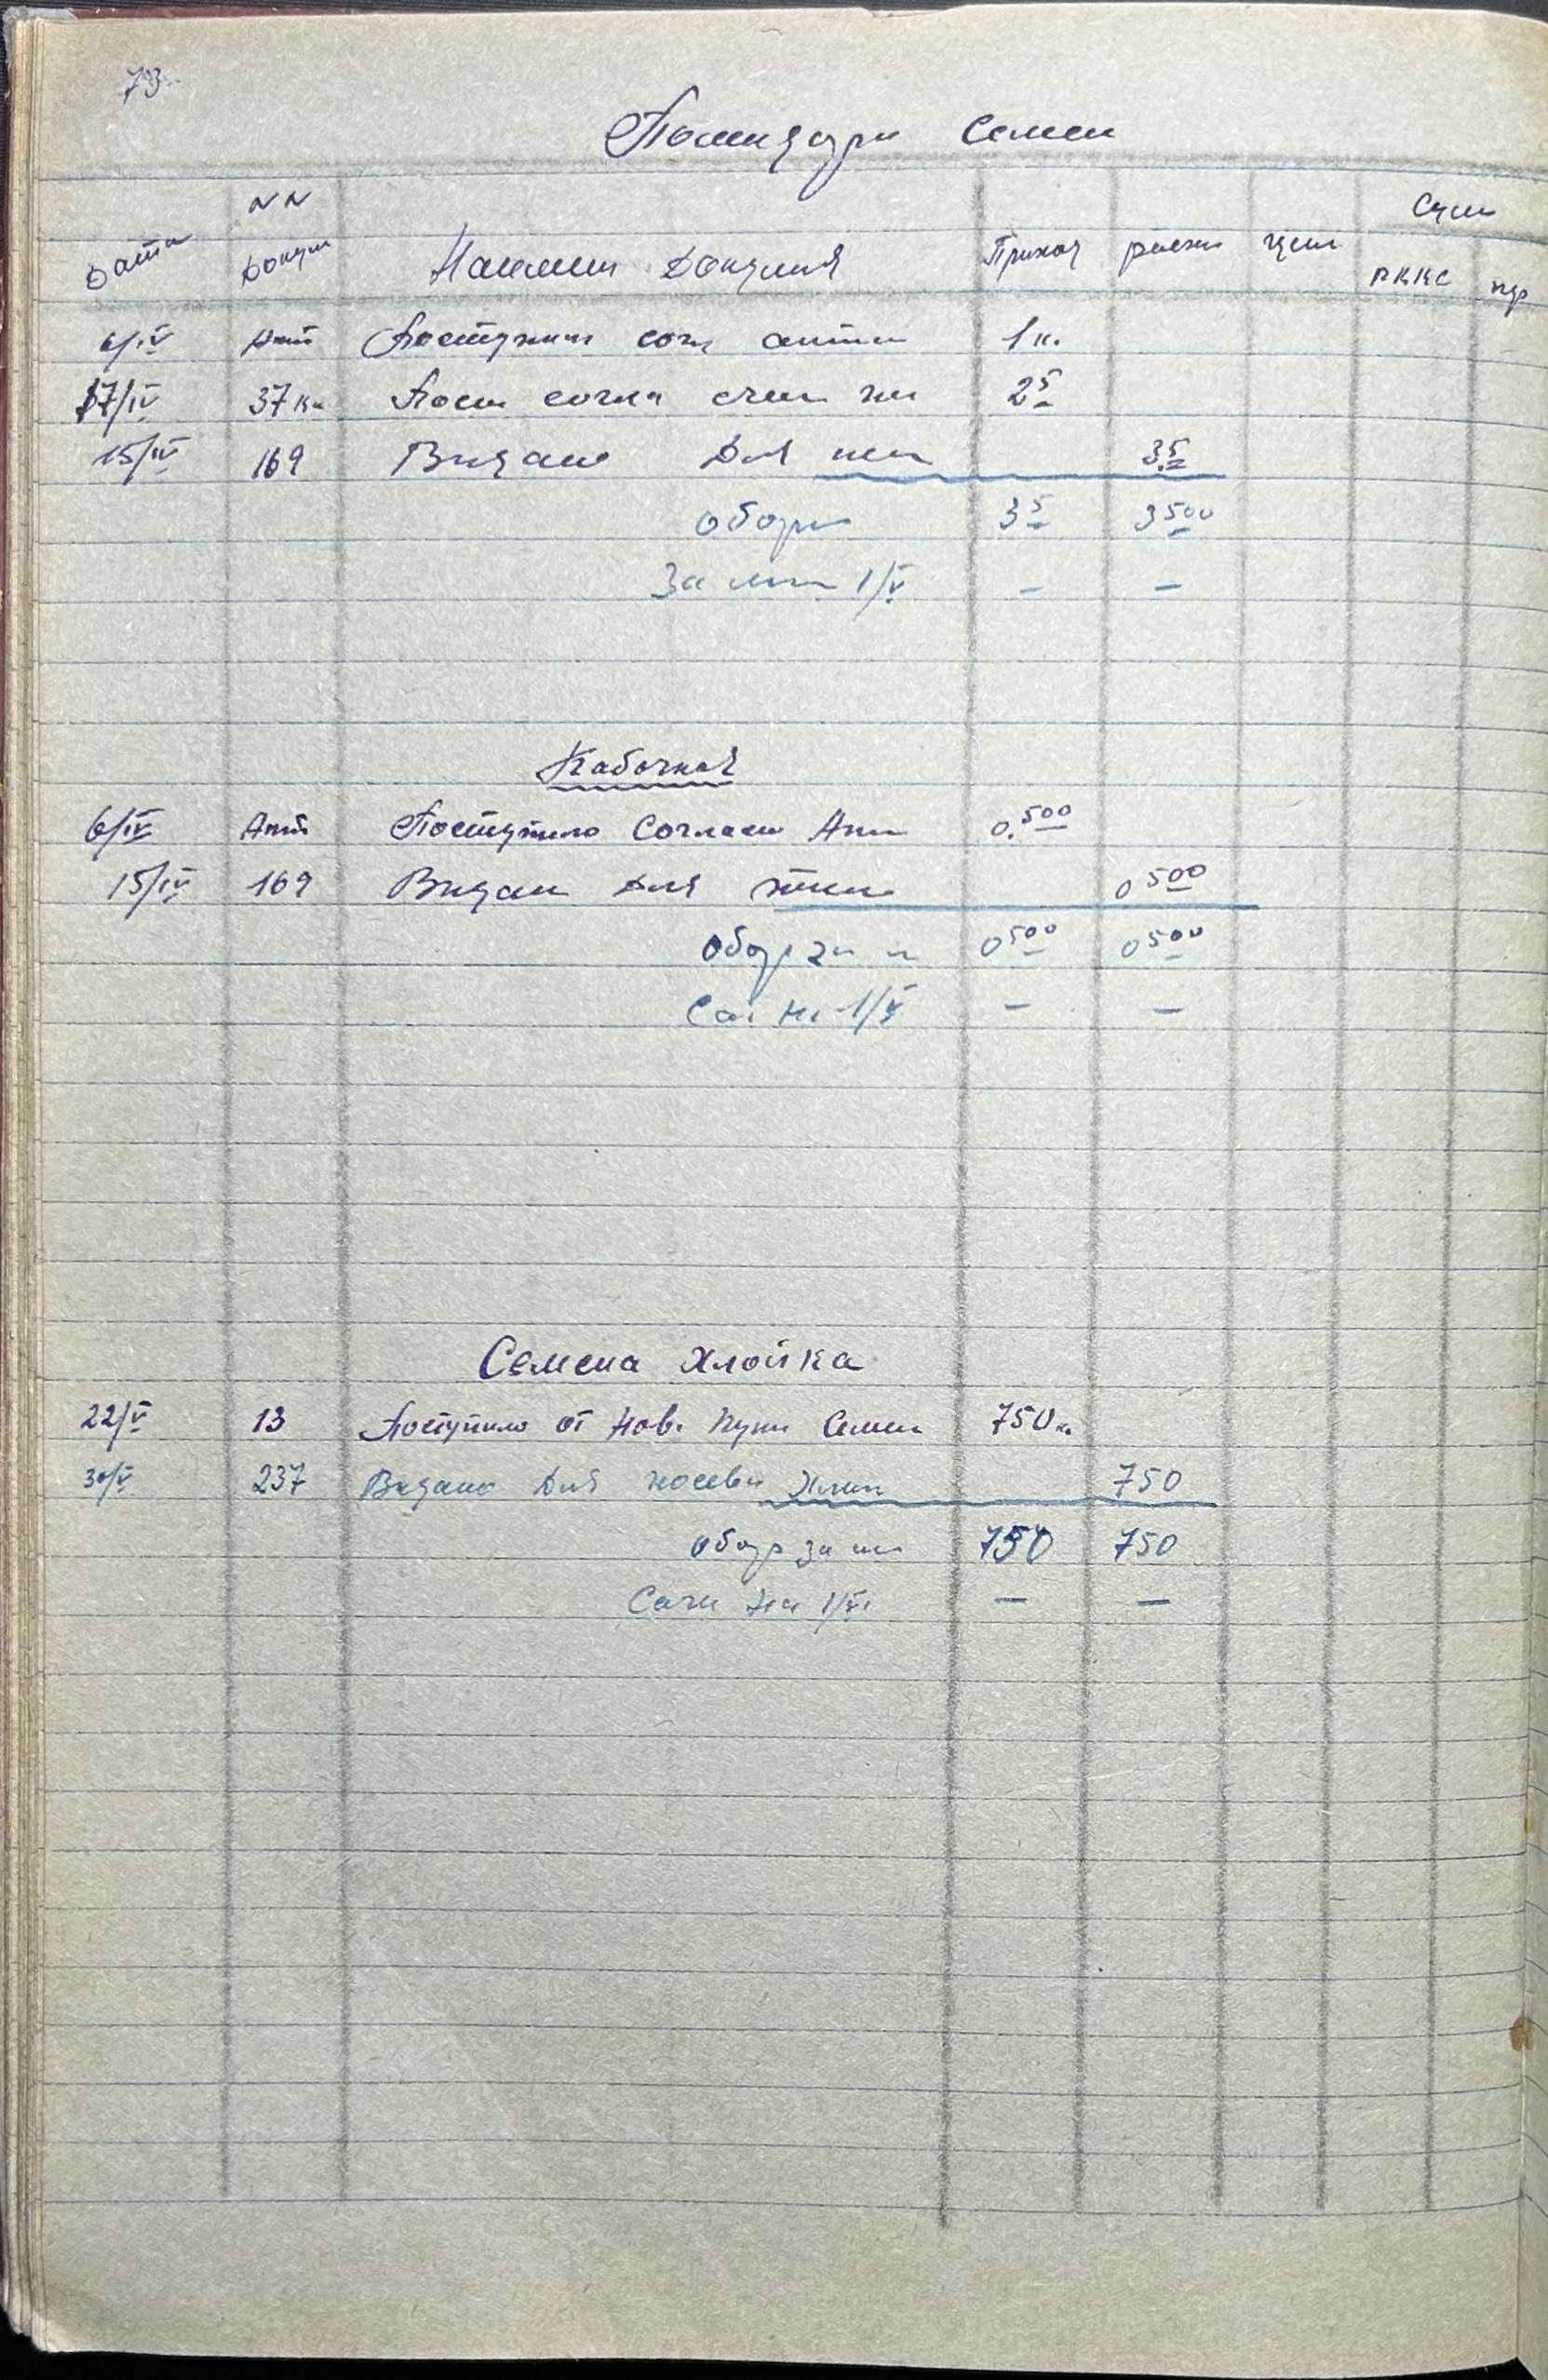 73
Помидори Семен
NN
Сум
Дата Докум Наимен Докумен Приход расход цена
ПККС
6/IV Акт Поступил согл акта 1 к.
17/IV 37 Пост согла счет 2 5
15/IV 169 Видано Для 3.5
Обор 3 5 3 500
За 1/V – –
Кабачкой
6/IV Акт Поступило Согласно Акт 0.500
15/IV 169 Видан Для 0 500
Обор за м 0 500 0 500
Са на 1/V – –
Семена хлопка
22/V 13 Поступило от Нов. Пунк Семен 750 к.
30/V 237 Видано Для посева Хлоп 750
Обор за м 750 750
Саль на 1/VI – –